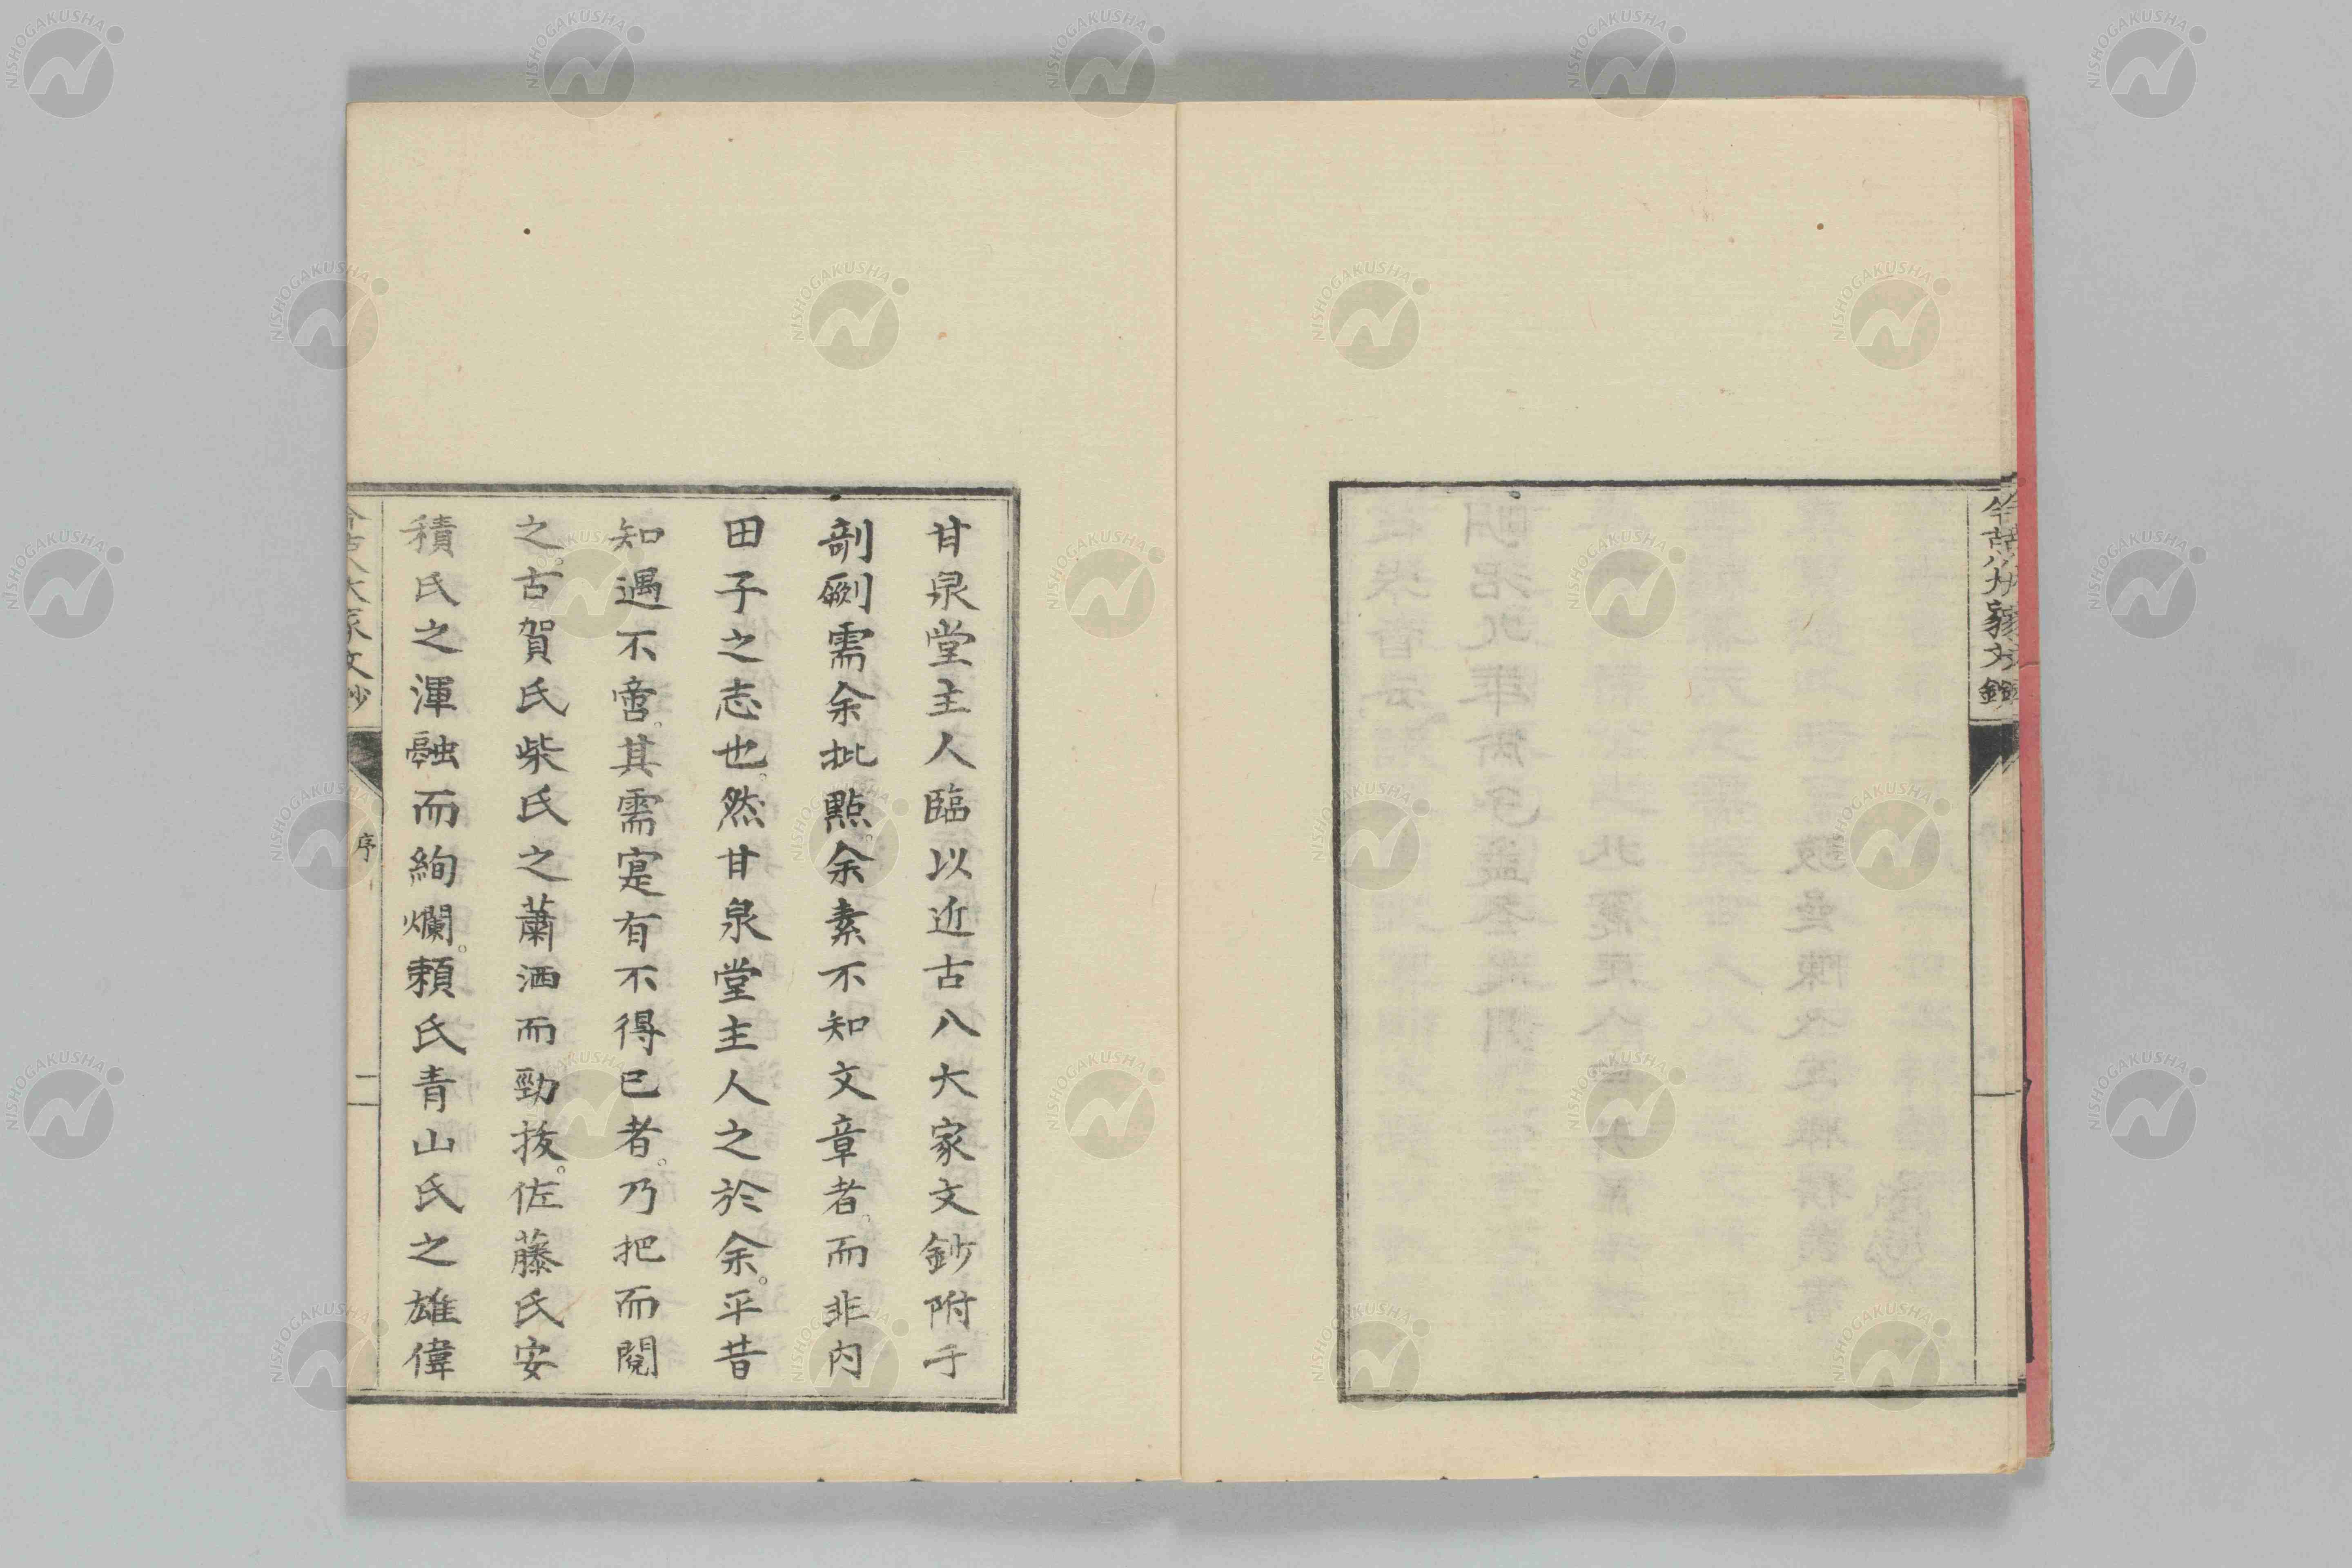 今古八大家文鈔
甘泉堂主人臨以近古八大家文鈔附于
剞劂需余批點。余素不知文章者。而非内
田子之志也。然甘泉堂主人之於余。平昔
知遇不啻。其需寔有不得已者。乃把而閱
之。古賀氏柴氏之蕭洒而勁抜。佐藤氏安
積氏之渾融而絢爛。賴氏青山氏之雄偉
今古八大家文鈔
序
二
NISHOGAKUSHA